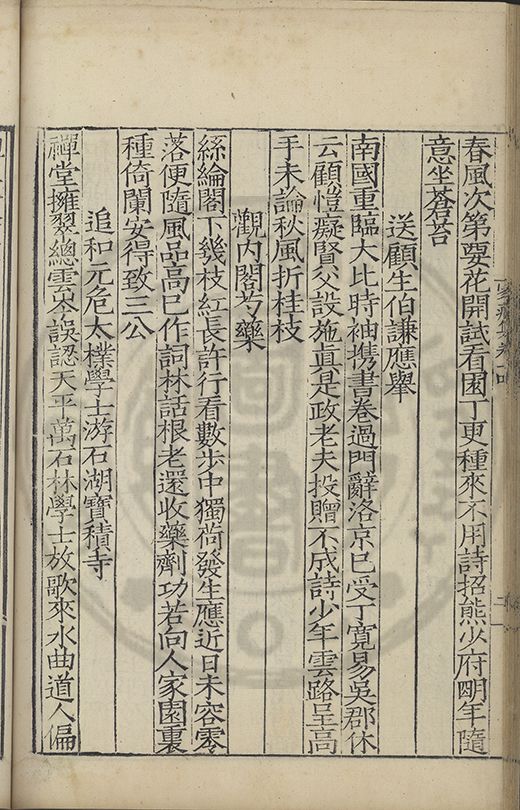 春風次第要花開試看園丁更種來不用詩招熊少府明年隨
意坐蒼苔
送顧生伯謙應舉
南國重臨大比時袖携書卷過門辭洛京已受丁寬易吳郡休
云顧愷癡賢父設施真是政老夫投贈不成詩少年雲路呈高
手未論秋風折桂枝
觀內閣芍藥
絲綸閣下幾枝紅長許行看數步中獨荷發生應近日未容零
落便隨風品高已作詞林話根老還收藥劑功若向人家園裏
種倚闌安得致三公
追和元危太樸學士游石湖寶積寺
禪堂擁翠總雲岑誤認天平萬石林學士放歌來水曲道人偏